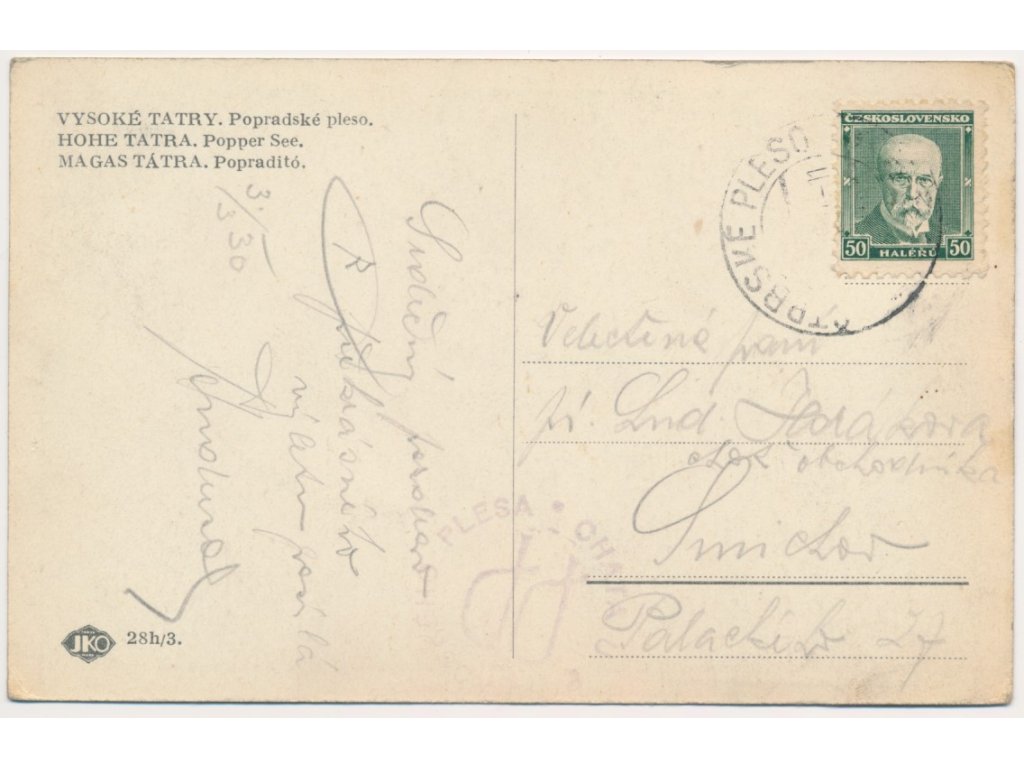 VYSOKÉ TATRY. Popradské pleso.
HOHE TATRA. Popper See.
MAGAS TÁTRA. Popraditó.
3./3 30
Srdečný pozdrav
z překrásného
výletu posílá
ČESKOSLOVENSKO
50 HALÉŘŮ 50
ŠTRBSKÉ PLESO
Velectěná paní
pí. Lud. Horáková
choť obchodníka
Smíchov
Palackého 27
PLESA * CHATA
JKO 28h/3.